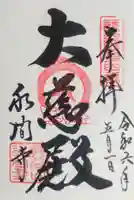 奉拝
令和六年
五月一日
大慈殿
永間寺